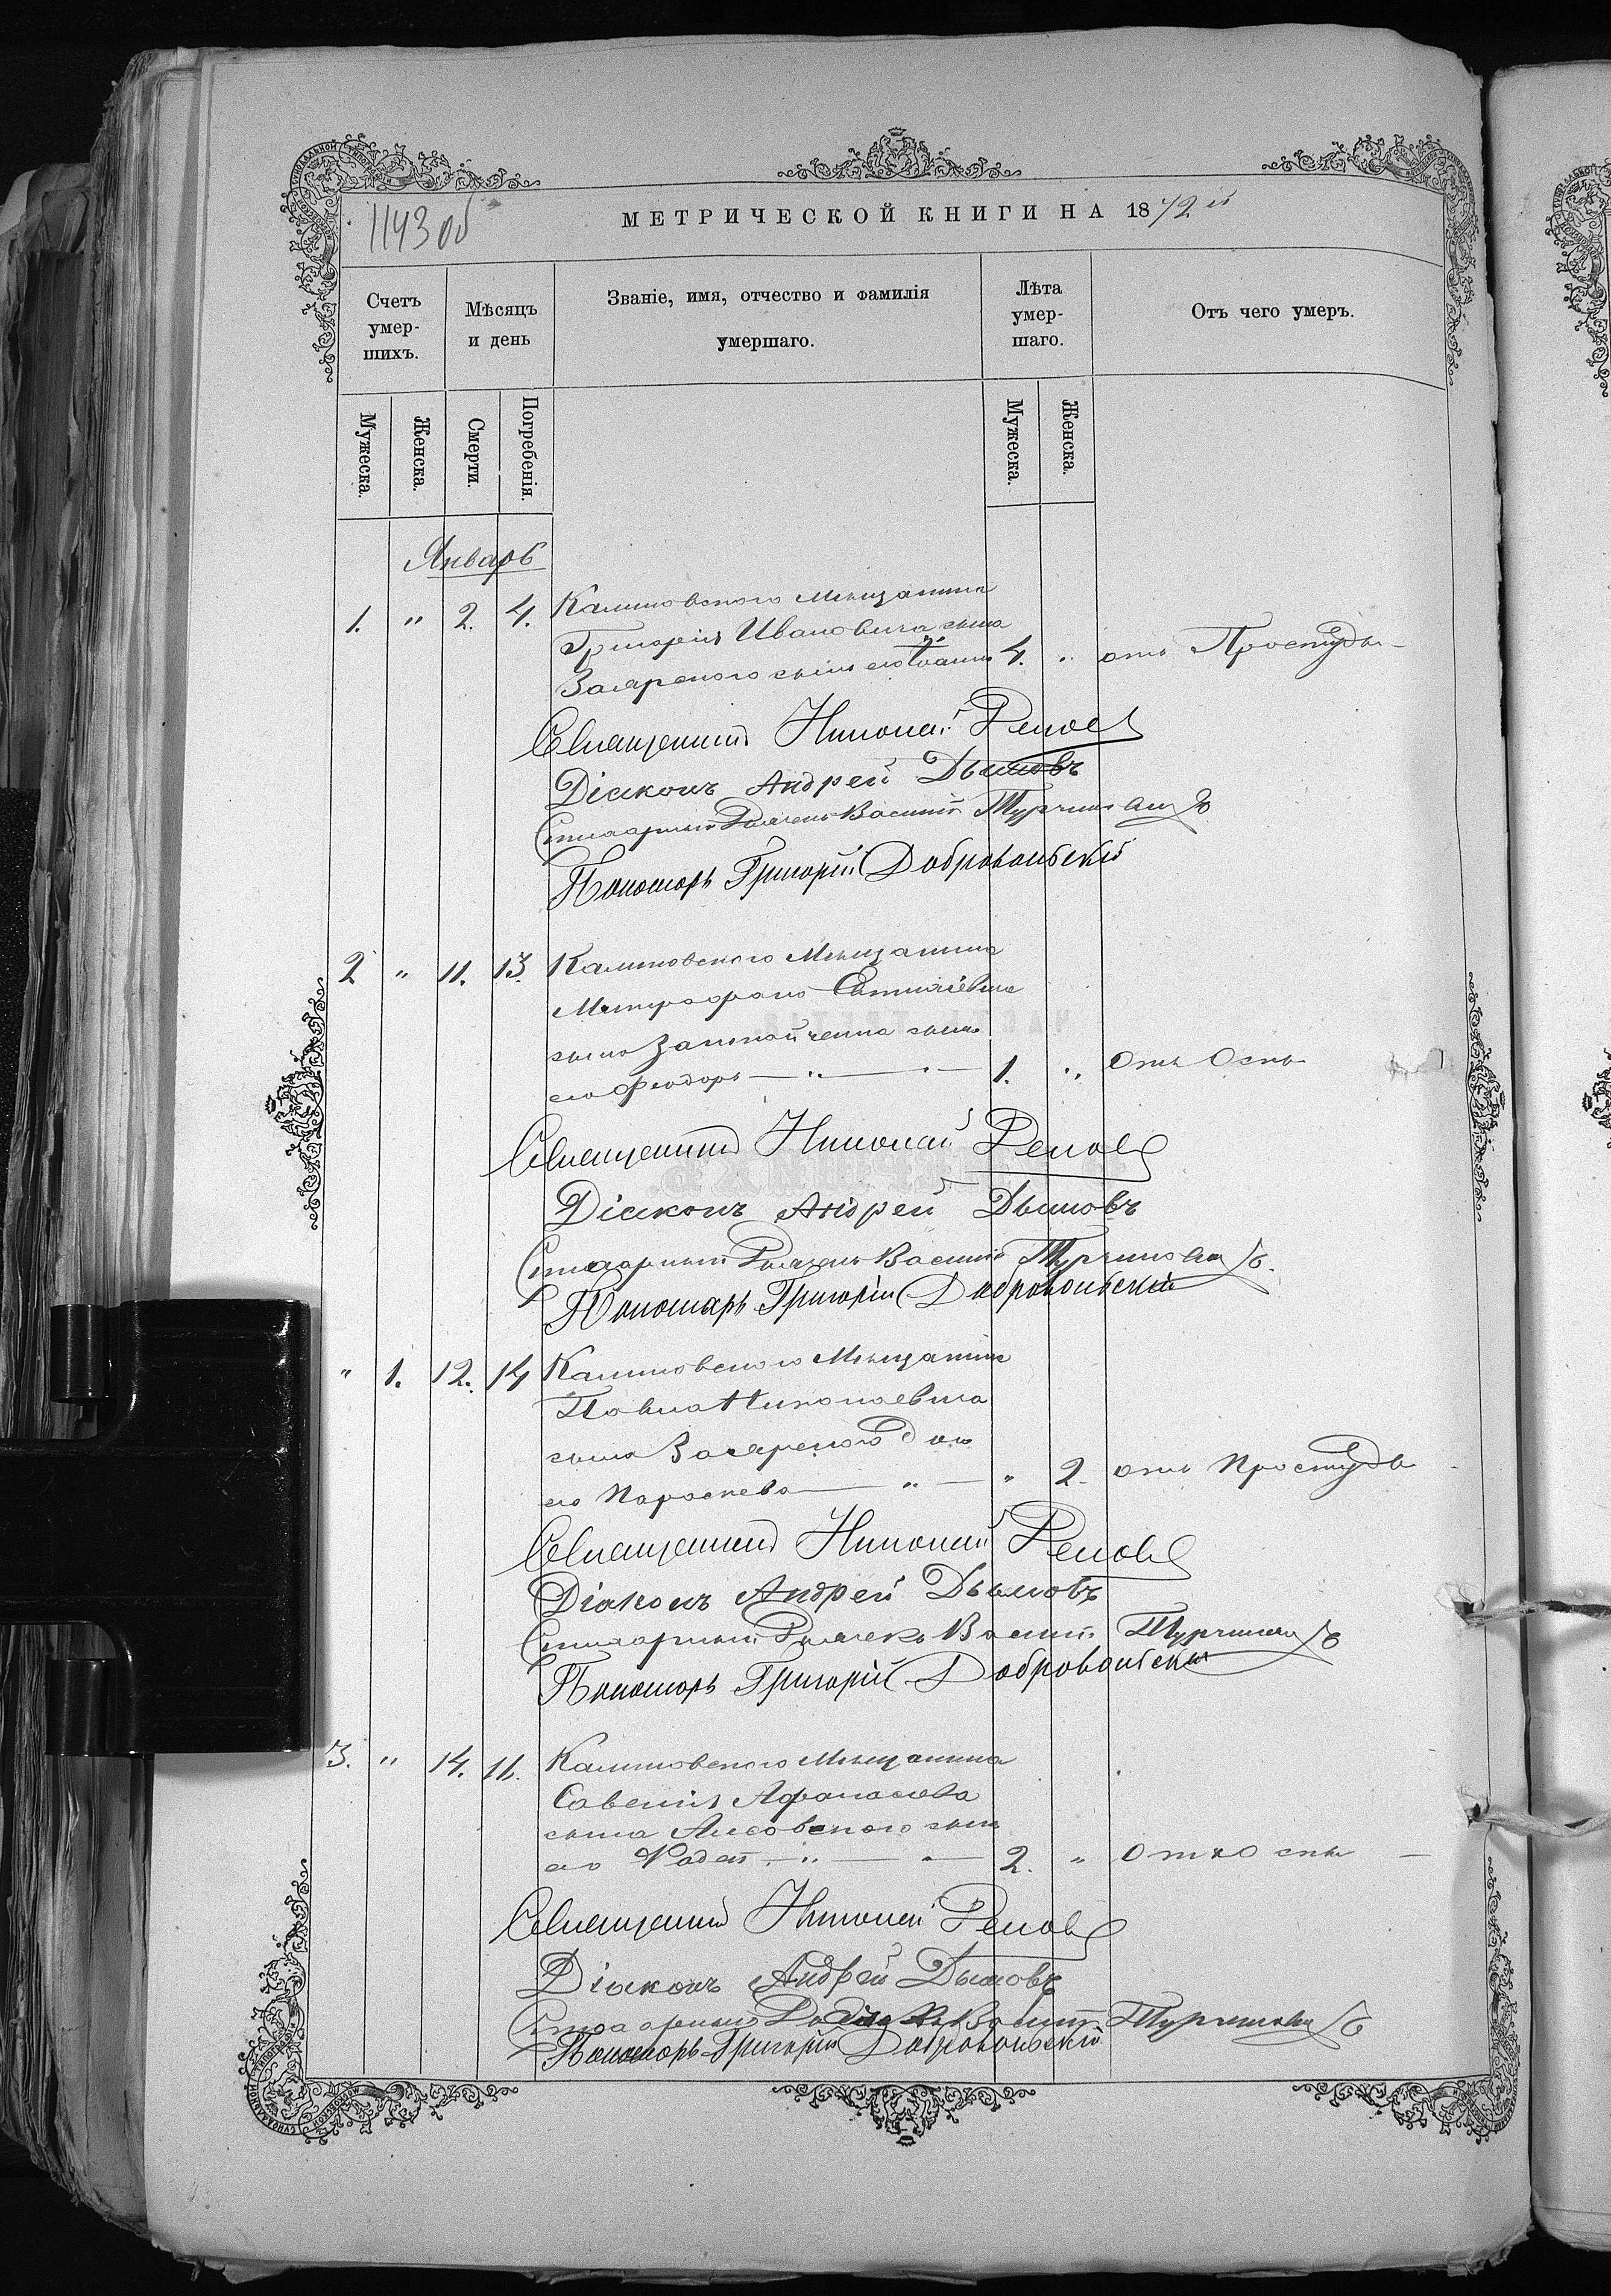 1143 об
МЕТРИЧЕСКОЙ КНИГИ НА 1872 й
Счетъ умер-шихъ.
Мѣсяцъ и день
Званіе, имя, отчество и фамилія умершаго.
Лѣта умер-шаго.
Отъ чего умеръ.
Мужеска.
Женска.
Смерти.
Погребенія.
Мужеска.
Женска.
Январь
1. " 2. 4. Калиновского Мещанина
Григорія Ивановича сына
Загарского сынъ его Іоаннъ 4. " отъ Простуды
Священникъ Николай
Діаконъ Андрей Дымовъ
Стихарный Василій
Пономарь Григорій Добровольскій
2 " 11. 13. Калиновского Мещанина
Митрофана Евтихіевича
сына сынъ
его Феодоръ 1. " Отъ Оспы
Священникъ Николай
Діаконъ Андрей Дымовъ
Стихарный Василій
Пономарь Григорій Добровольскій
" 1. 12. 14 Калиновского Мещанина
Павла Николаевича
сына Загарского дочь
его Параскева " " 2. отъ Простуды
Священникъ Николай
Діаконъ Андрей Дымовъ
Стихарный Василій
Пономарь Григорій Добровольскій
3. " 14. Калиновского Мещанина
Савелія Афанасіева
сына Лисовского сынъ
его 2. " Отъ Оспы
Священникъ Николай
Діаконъ Андрей Дымовъ
Пономарь Григорій Добровольскій